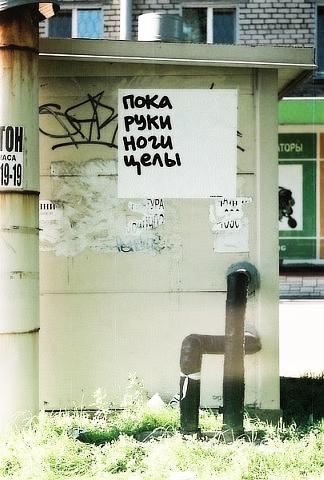 ПОКА
РУКИ
НОГИ
ЦЕЛЫ
ТОН
ЧАСА
19-19
АТОРЫ